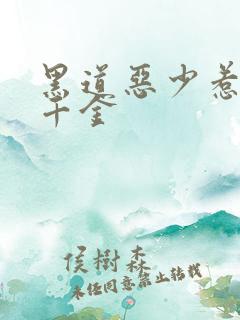 黑道惡少惹
千金
侯樹森
未经同意禁止转载